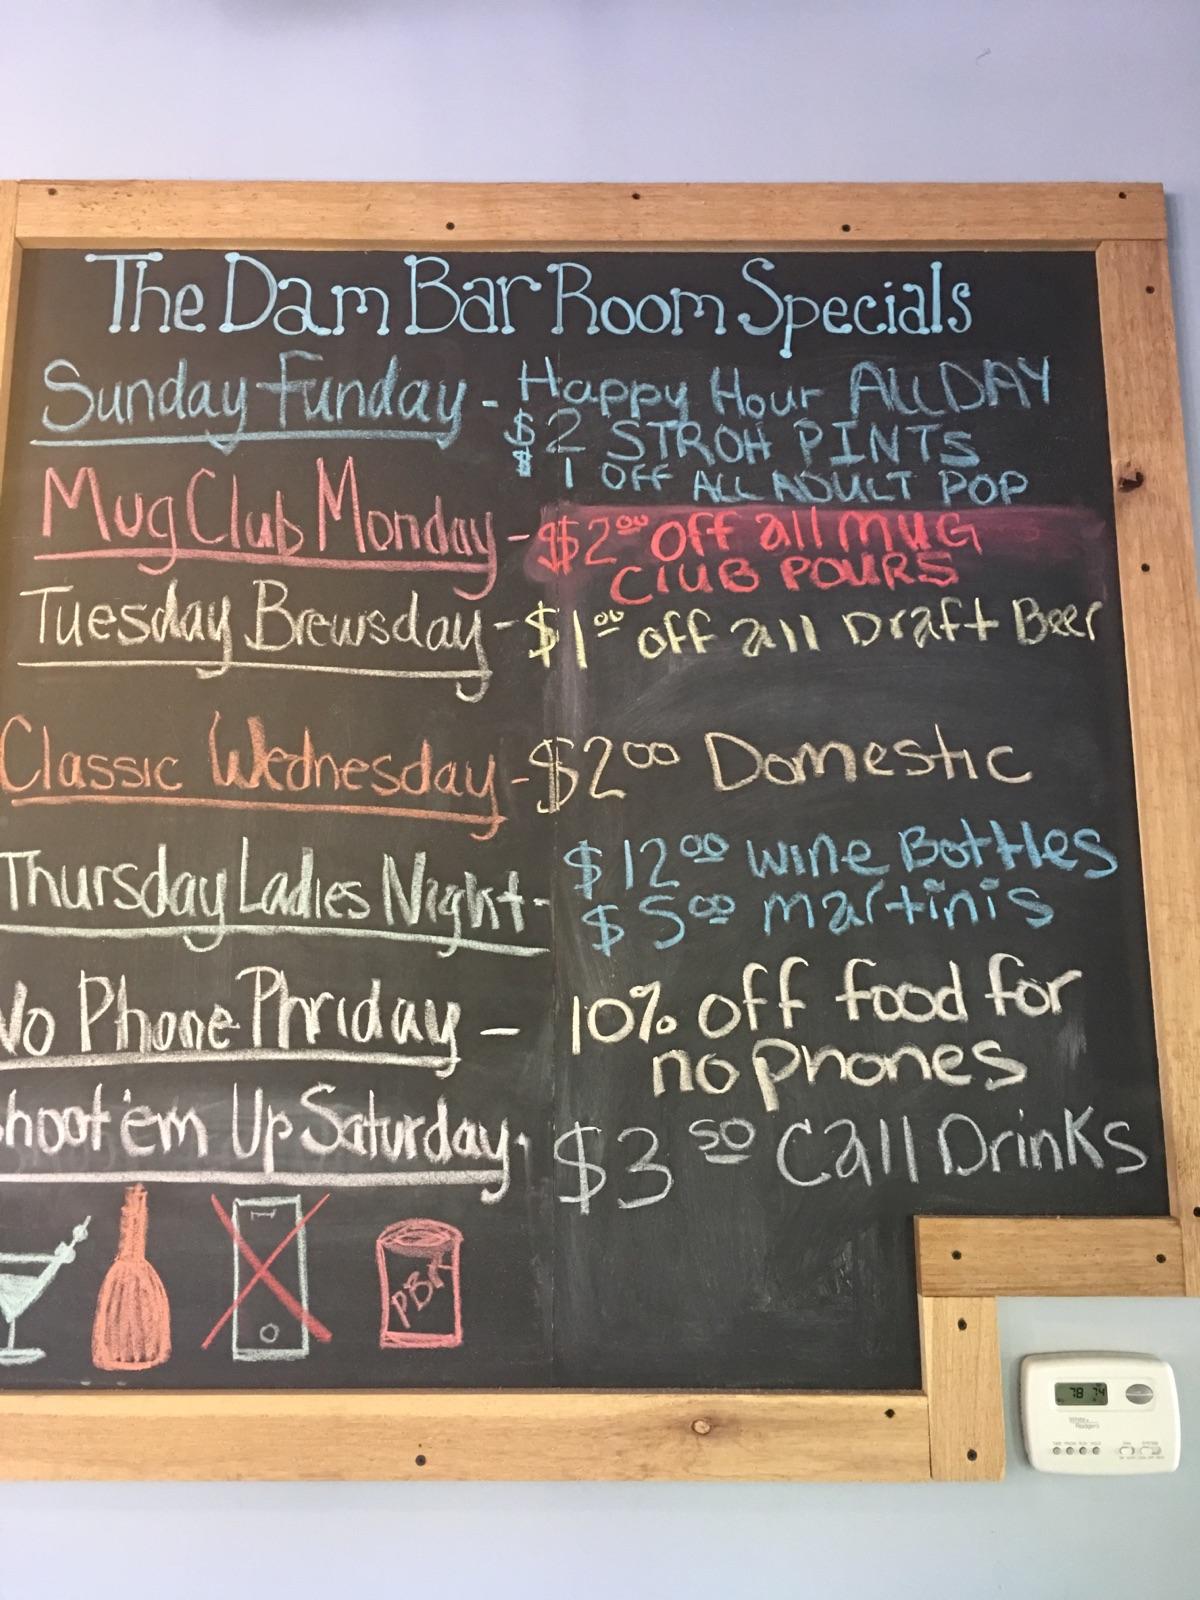 The Dam Bar Room Specials
Sunday Funday - Happy Hour ALL DAY
$2 STROH PINTS
$1 OFF ALL ADULT POP
Mug Club Monday - $2.00 off all MUG
CLUB POURS
Tuesday Brewsday - $1.00 off all Draft Beer
Classic Wednesday - $2.00 Domestic
Thursday Ladies Night - $12.00 Wine Bottles
$5.00 martinis
No Phone Phriday - 10% off food for
no phones
hoot 'em Up Saturday - $3.50 Call Drinks
PBR
78 74
White
Rodgers